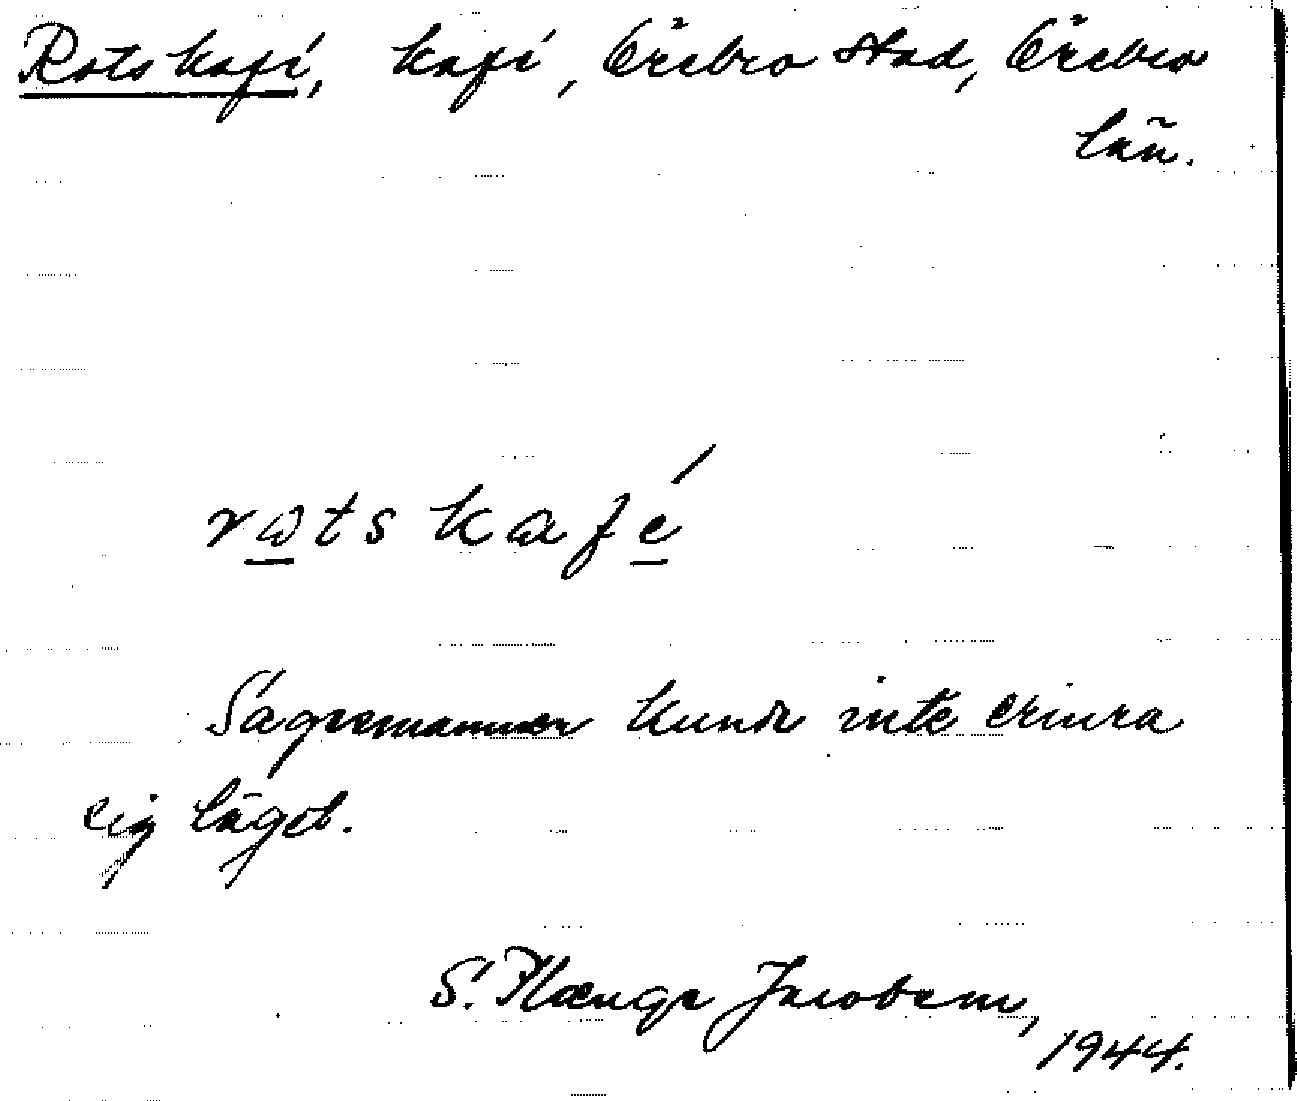 Rots kafé, kafé, Örebro stad, Örebro
län.
rωts kafé
Sagesmannen kunde inte erinra
sig läget.
S. Plænge Jacobson,
1944.